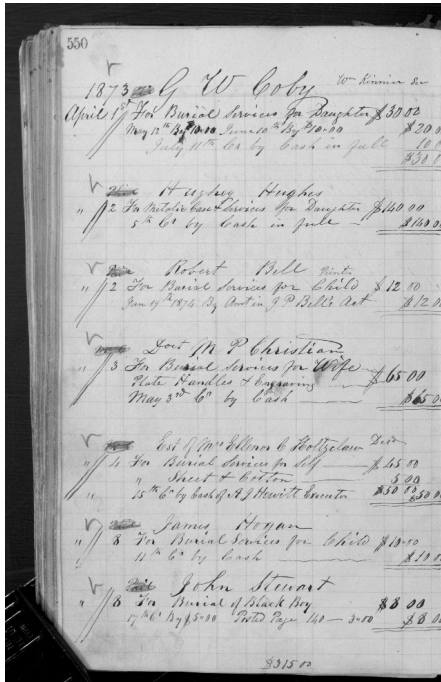 550
1873 G W Coby Wm Kinnier Sec
April 1st For Burial Services for Daughter $30.00
May 12th By $10.00 June 10th By $10.00 $20.0
July 11th Cr by Cash in full 10.0
$30.0
Hughey Hughes
" 2 For Metalic Case & Services for Daughter $140.00
5th Cr by Cash in full $140.0
Robert Bell Printer
" 2 For Burial Services for Child $12.00
Jan 19th 1874 By Amt in J P Bell's Act $12.0
Doct M P Christian
" 3 For Burial Services for Wife
Plate Handles & Engraving $65.00
May 3rd Cr by Cash $65.0
Est of Mrs Ellenor C Holtzclaw Decd
" 4 For Burial Services for Self $45.00
" Sheet & Cotton 5.00
" 15th Cr by Cash of A J Hewitt Executor $50.00 $50.0
James Hogan
" 8 For Burial Services for Child $10.00
11th Cr by Cash $10.0
Paid John Stewart
" 8 For Burial of Black Boy $8.00
17th Cr By $5.00 Posted Page 140 — 3.00 $8.0
$315.00